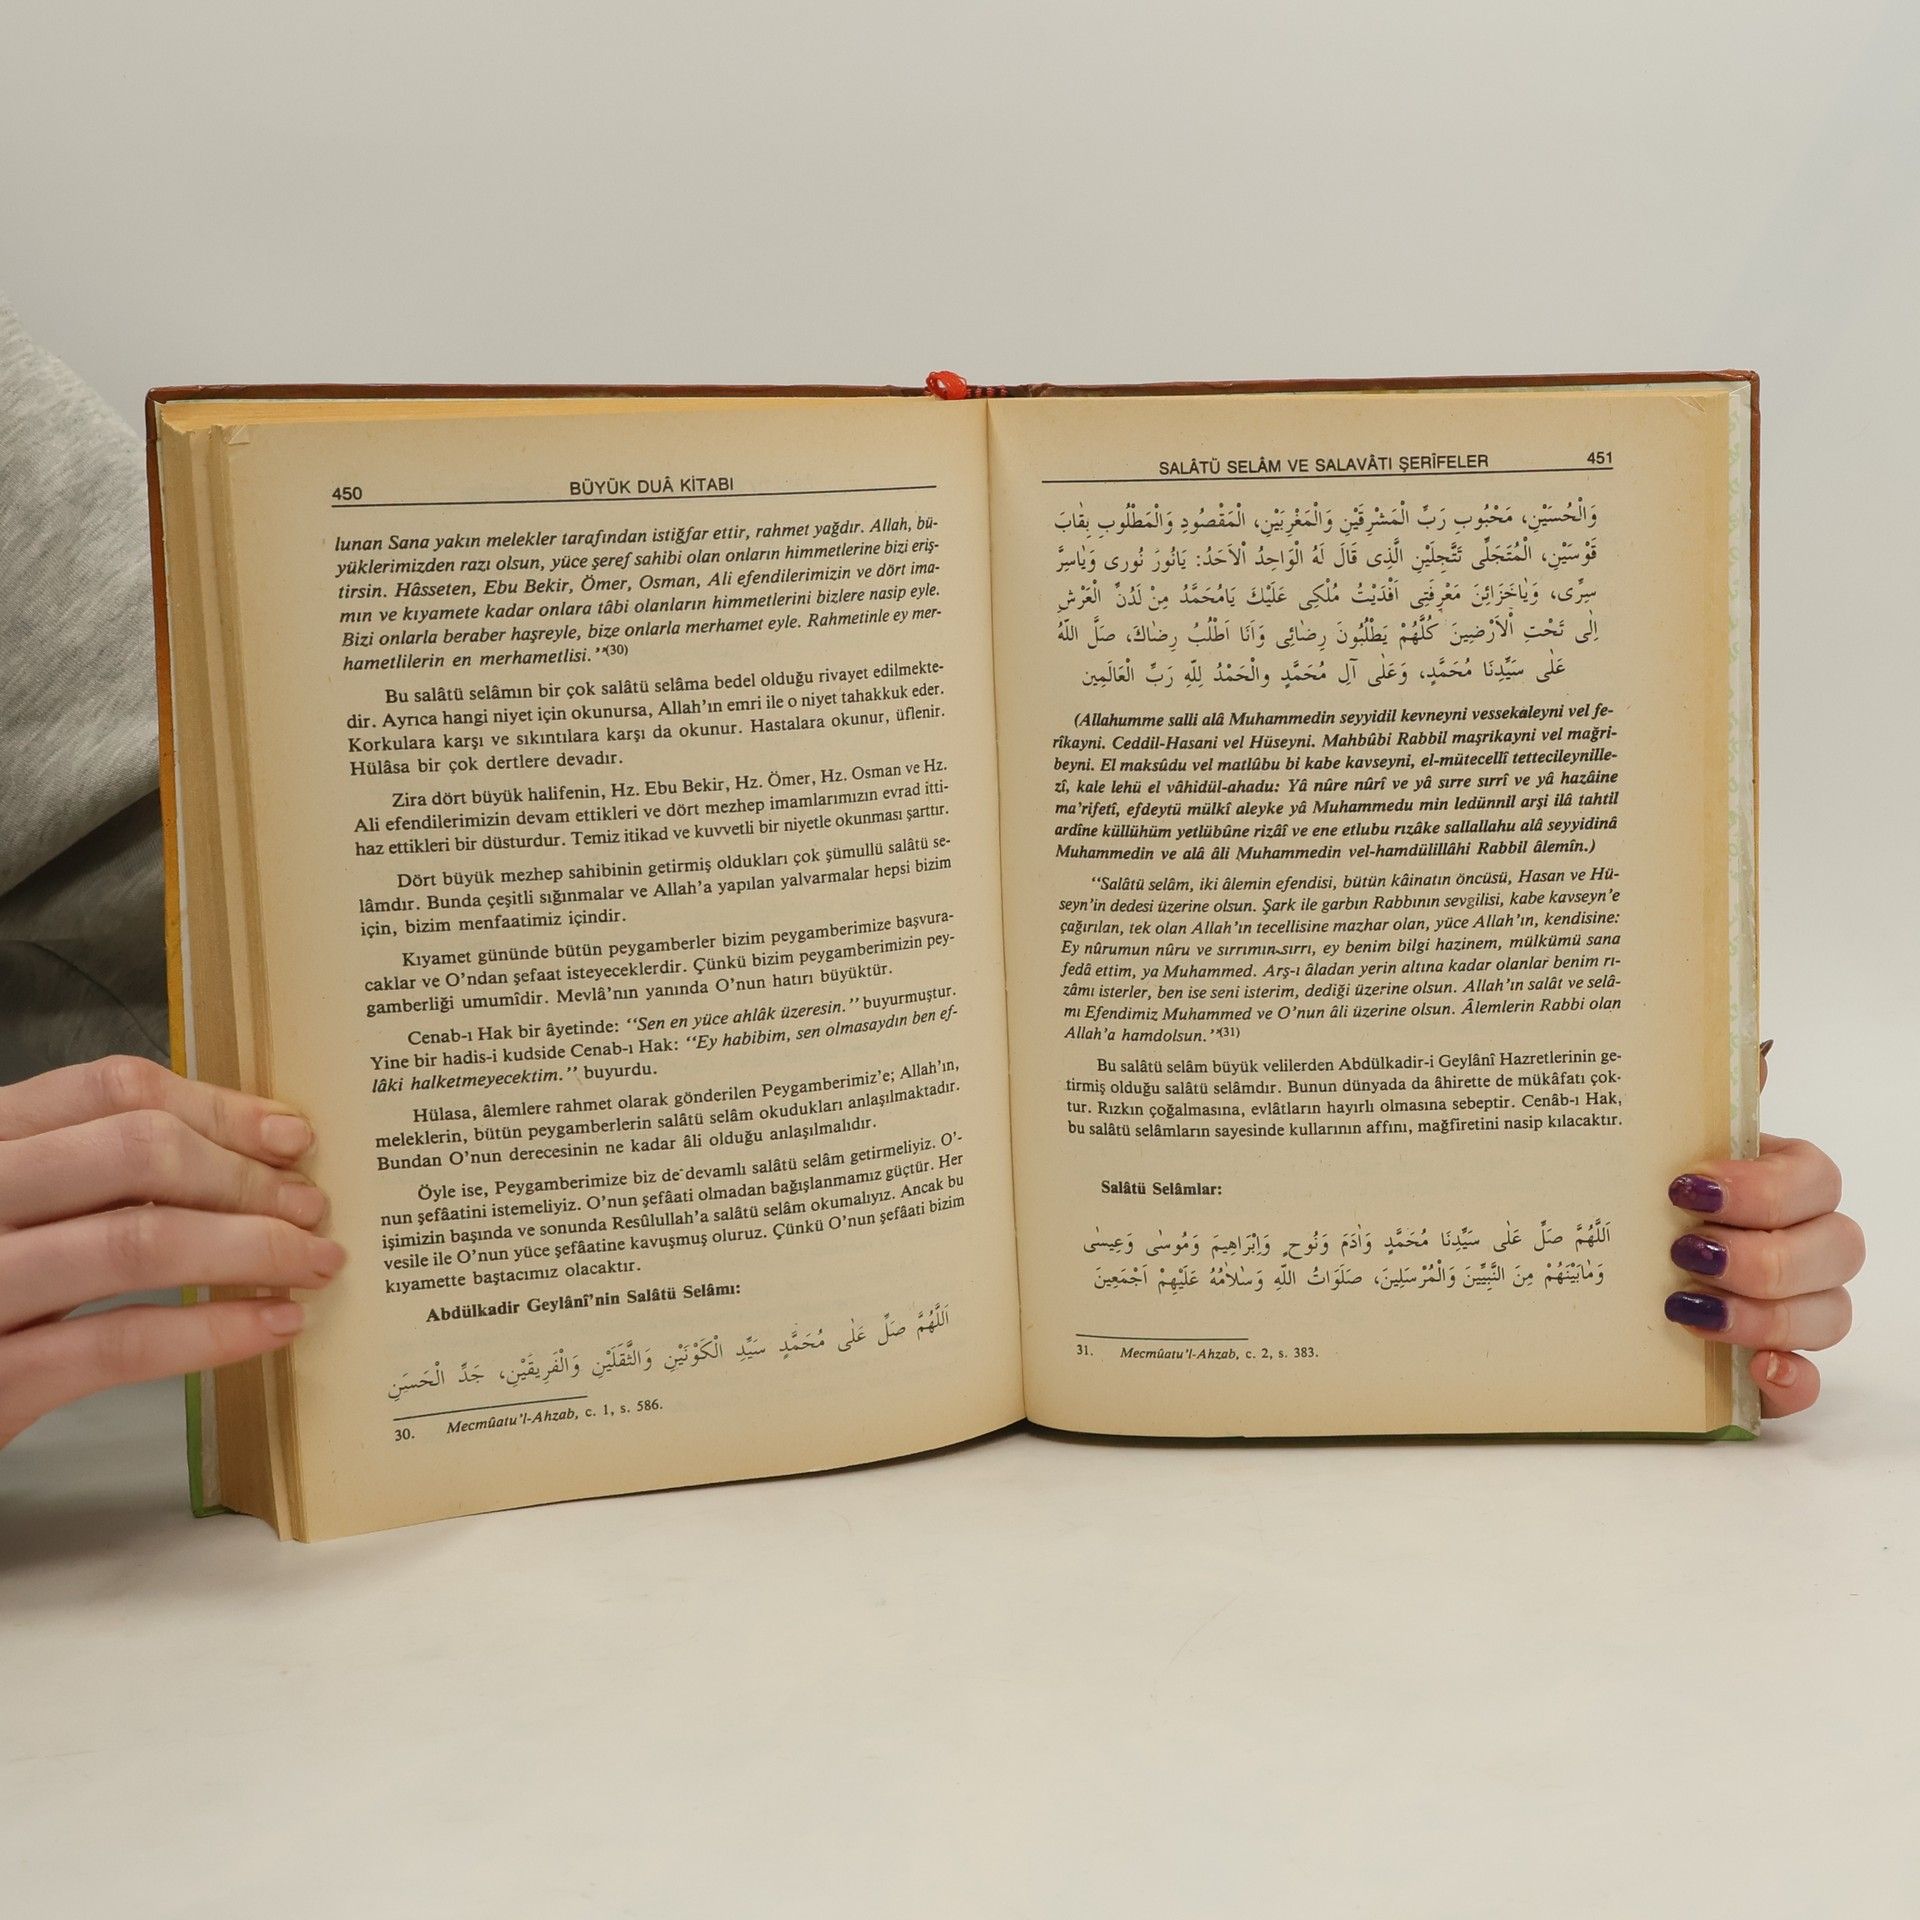 450 BÜYÜK DUÂ KİTABI
lunan Sana yakın melekler tarafından istiğfar ettir, rahmet yağdır. Allah, bü-
yüklerimizden razı olsun, yüce şeref sahibi olan onların himmetlerine bizi eriş-
tirsin. Hâsseten, Ebu Bekir, Ömer, Osman, Ali efendilerimizin ve dört ima-
mın ve kıyamete kadar onlara tâbi olanların himmetlerini bizlere nasip eyle.
Bizi onlarla beraber haşreyle, bize onlarla merhamet eyle. Rahmetinle ey mer-
hametlilerin en merhametlisi.''(30)
Bu salâtü selâmın bir çok salâtü selâma bedel olduğu rivayet edilmekte-
dir. Ayrıca hangi niyet için okunursa, Allah'ın emri ile o niyet tahakkuk eder.
Korkulara karşı ve sıkıntılara karşı da okunur. Hastalara okunur, üflenir.
Hülâsa bir çok dertlere devadır.
Zira dört büyük halifenin, Hz. Ebu Bekir, Hz. Ömer, Hz. Osman ve Hz.
Ali efendilerimizin devam ettikleri ve dört mezhep imamlarımızın evrad itti-
haz ettikleri bir düsturdur. Temiz itikad ve kuvvetli bir niyetle okunması şarttır.
Dört büyük mezhep sahibinin getirmiş oldukları çok şümullü salâtü se-
lâmdır. Bunda çeşitli sığınmalar ve Allah'a yapılan yalvarmalar hepsi bizim
için, bizim menfaatimiz içindir.
Kıyamet gününde bütün peygamberler bizim peygamberimize başvura-
caklar ve O'ndan şefaat isteyeceklerdir. Çünkü bizim peygamberimizin pey-
gamberliği umumîdir. Mevlâ'nın yanında O'nun hatırı büyüktür.
Cenab-ı Hak bir âyetinde: ''Sen en yüce ahlâk üzeresin.'' buyurmuştur.
Yine bir hadis-i kudside Cenab-ı Hak: ''Ey habibim, sen olmasaydın ben ef-
lâki halketmeyecektim.'' buyurdu.
Hülasa, âlemlere rahmet olarak gönderilen Peygamberimiz'e; Allah'ın,
meleklerin, bütün peygamberlerin salâtü selâm okudukları anlaşılmaktadır.
Bundan O'nun derecesinin ne kadar âli olduğu anlaşılmalıdır.
Öyle ise, Peygamberimize biz de devamlı salâtü selâm getirmeliyiz. O'-
nun şefâatini istemeliyiz. O'nun şefâati olmadan bağışlanmamız güçtür. Her
işimizin başında ve sonunda Resûlullah'a salâtü selâm okumalıyız. Ancak bu
vesile ile O'nun yüce şefâatine kavuşmuş oluruz. Çünkü O'nun şefâati bizim
kıyamette baştacımız olacaktır.
Abdülkadir Geylânî'nin Salâtü Selâmı:
اَللّٰهُمَّ صَلِّ عَلٰى مُحَمَّدٍ سَيِّدِ الْكَوْنَيْنِ وَالثَّقَلَيْنِ وَالْفَرِيقَيْنِ، جَدِّ الْحَسَنِ
30. Mecmûatu'l-Ahzab, c. 1, s. 586.
SALÂTÜ SELÂM VE SALAVÂTI ŞERÎFELER 451
وَالْحُسَيْنِ، مَحْبُوبِ رَبِّ الْمَشْرِقَيْنِ وَالْمَغْرِبَيْنِ، الْمَقْصُودِ وَالْمَطْلُوبِ بِقَابَ
قَوْسَيْنِ، الْمُتَجَلِّى تَتَّجِلَيْنِ الَّذِى قَالَ لَهُ الْوَاحِدُ اْلاَحَدُ: يَانُورَ نُورِى وَيَاسِرَّ
سِرِّى، وَيَاخَزَائِنَ مَعْرِفَتِى اَفْدَيْتُ مُلْكِى عَلَيْكَ يَامُحَمَّدُ مِنْ لَدُنِّ الْعَرْشِ
اِلٰى تَحْتِ اْلاَرْضِينَ كُلُّهُمْ يَطْلُبُونَ رِضَائِى وَاَنَا اَطْلُبُ رِضَاكَ، صَلَّ اللّٰهُ
عَلٰى سَيِّدِنَا مُحَمَّدٍ، وَعَلٰى آلِ مُحَمَّدٍ والْحَمْدُ لِلّٰهِ رَبِّ الْعَالَمِين
(Allahumme salli alâ Muhammedin seyyidil kevneyni vessekaleyni vel fe-
rîkayni. Ceddil-Hasani vel Hüseyni. Mahbûbi Rabbil maşrikayni vel mağri-
beyni. El maksûdu vel matlûbu bi kabe kavseyni, el-mütecellî tettecileynille-
zî, kale lehü el vâhidül-ahadu: Yâ nûre nûrî ve yâ sırre sırrî ve yâ hazâine
ma'rifetî, efdeytü mülkî aleyke yâ Muhammedu min ledünnil arşi ilâ tahtil
ardîne küllühüm yetlübûne rizâî ve ene etlubu rızâke sallallahu alâ seyyidinâ
Muhammedin ve alâ âli Muhammedin vel-hamdülillâhi Rabbil âlemîn.)
''Salâtü selâm, iki âlemin efendisi, bütün kâinatın öncüsü, Hasan ve Hü-
seyn'in dedesi üzerine olsun. Şark ile garbın Rabbının sevgilisi, kabe kavseyn'e
çağırılan, tek olan Allah'ın tecellisine mazhar olan, yüce Allah'ın, kendisine:
Ey nûrumun nûru ve sırrımın sırrı, ey benim bilgi hazinem, mülkümü sana
fedâ ettim, ya Muhammed. Arş-ı âladan yerin altına kadar olanlar benim rı-
zâmı isterler, ben ise seni isterim, dediği üzerine olsun. Allah'ın salât ve selâ-
mı Efendimiz Muhammed ve O'nun âli üzerine olsun. Âlemlerin Rabbi olan
Allah'a hamdolsun.''(31)
Bu salâtü selâm büyük velilerden Abdülkadir-i Geylânî Hazretlerinin ge-
tirmiş olduğu salâtü selâmdır. Bunun dünyada da âhirette de mükâfatı çok-
tur. Rızkın çoğalmasına, evlâtların hayırlı olmasına sebeptir. Cenâb-ı Hak,
bu salâtü selâmların sayesinde kullarının affını, mağfiretini nasip kılacaktır.
Salâtü Selâmlar:
اَللّٰهُمَّ صَلِّ عَلٰى سَيِّدِنَا مُحَمَّدٍ وَاٰدَمَ وَنُوحٍ وَاِبْرَاهِيمَ وَمُوسٰى وَعِيسٰى
وَمَابَيْنَهُمْ مِنَ النَّبِيِّينَ وَالْمُرْسَلِينَ، صَلَوَاتُ اللّٰهِ وَسَلاَمُهُ عَلَيْهِمْ اَجْمَعِينَ
31. Mecmûatu'l-Ahzab, c. 2, s. 383.